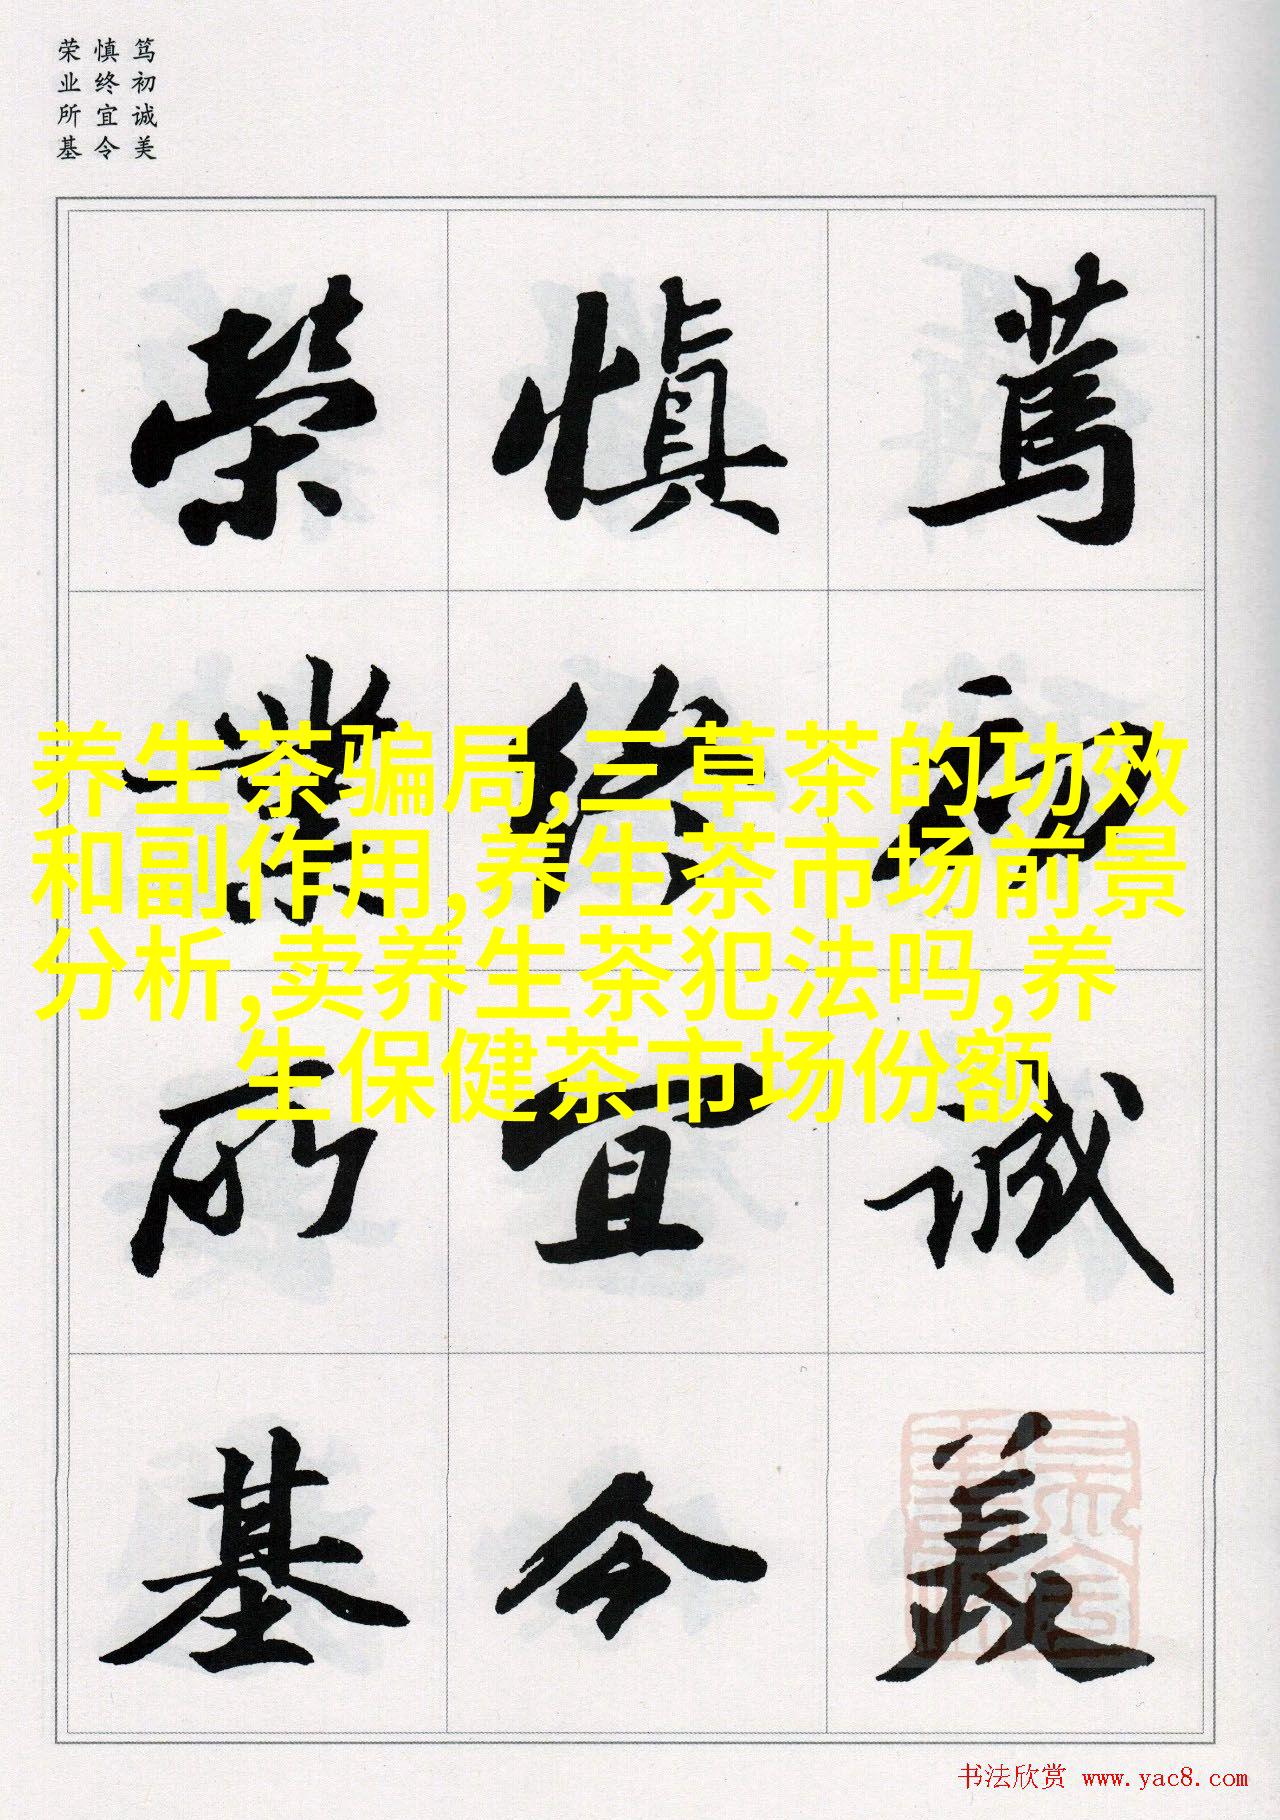 笃初诚美
慎终宜令
荣业所基
篤初誠美
慎終宜令
榮業所基
养生茶骗局,三草茶的功效
和副作用,养生茶市场前景
分析,卖养生茶犯法吗,养
生保健茶市场份额
书法欣赏 www.yac8.com